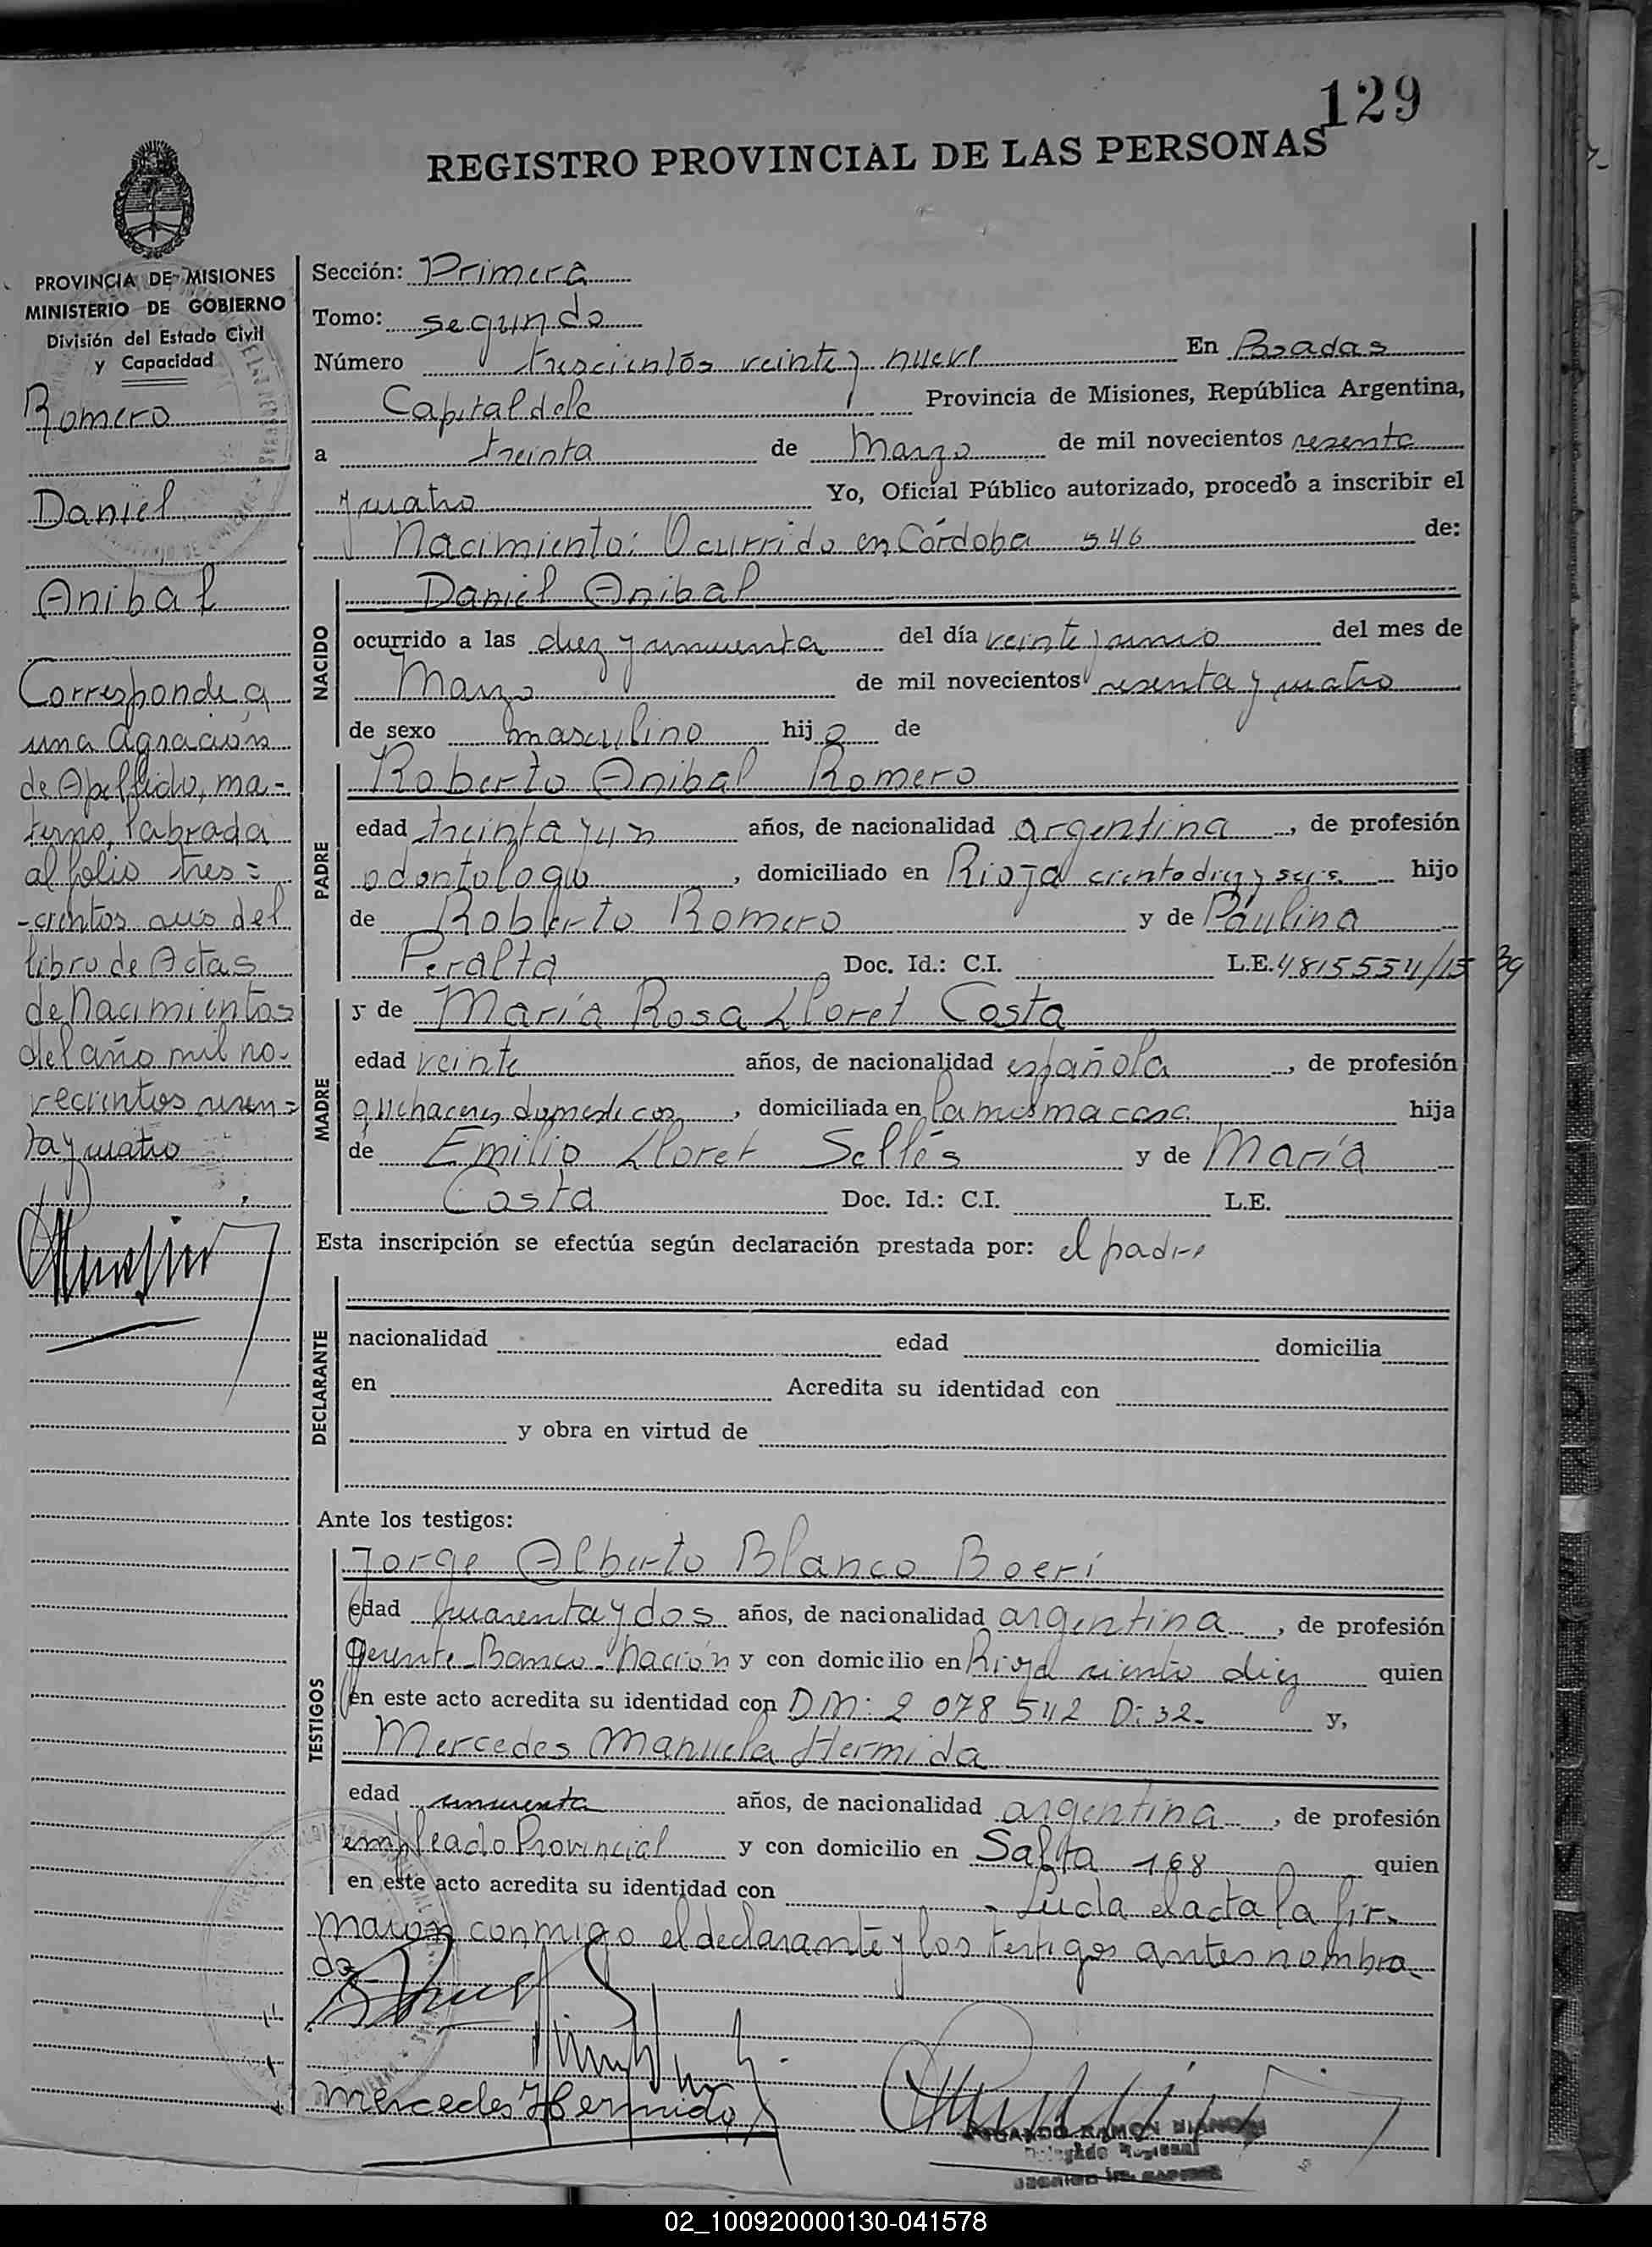 129
REGISTRO PROVINCIAL DE LAS PERSONAS
PROVINCIA DE MISIONES
MINISTERIO DE GOBIERNO
División del Estado Civil
y Capacidad
Romero
Daniel
Anibal
Corresponde a
una agración
de Apellido, ma-
terno, labrada
al folio tres=
-cientos del
libro de Actas
de Nacimientos
del año mil no-
vecientos sesen=
ta y cuatro
Sección: Primera
Tomo: segundo
Número trescientos veinte y nueve En Posadas
Capital de la Provincia de Misiones, República Argentina,
a treinta de Marzo de mil novecientos sesenta
y cuatro Yo, Oficial Público autorizado, procedo a inscribir el
Nacimiento: Ocurrido en Córdoba 546 de:
NACIDO
Daniel Anibal
ocurrido a las diez y cincuenta del día veinte y cinco del mes de
Marzo de mil novecientos sesenta y cuatro
de sexo masculino hijo de
PADRE
Roberto Anibal Romero
edad treinta y un años, de nacionalidad argentina, de profesión
odontologo, domiciliado en Rioja ciento diez y seis hijo
de Roberto Romero y de Paulina
Peralta Doc. Id.: C.I. L.E. 4815554/15 39
MADRE
y de María Rosa Lloret Costa
edad veinte años, de nacionalidad española, de profesión
quehaceres domesticos, domiciliada en la misma casa hija
de Emilio Lloret Sellés y de María
Costa Doc. Id.: C.I. L.E.
Esta inscripción se efectúa según declaración prestada por: el padre
DECLARANTE
nacionalidad edad domicilia
en Acredita su identidad con
y obra en virtud de
Ante los testigos:
TESTIGOS
Jorge Alberto Blanco Boeri
edad cuarenta y dos años, de nacionalidad argentina, de profesión
Gerente-Banco-Nación y con domicilio en Rioja ciento diez quien
en este acto acredita su identidad con DM: 2 078 542 D: 32- y,
Mercedes Manuela Hermida
edad cincuenta años, de nacionalidad argentina, de profesión
empleado Provincial y con domicilio en Salta 168 quien
en este acto acredita su identidad con - Leida el acta la fir-
maron conmigo el declarante y los testigos antes nombra-
dos
Mercedes Hermida
RAMON
02_100920000130-041578